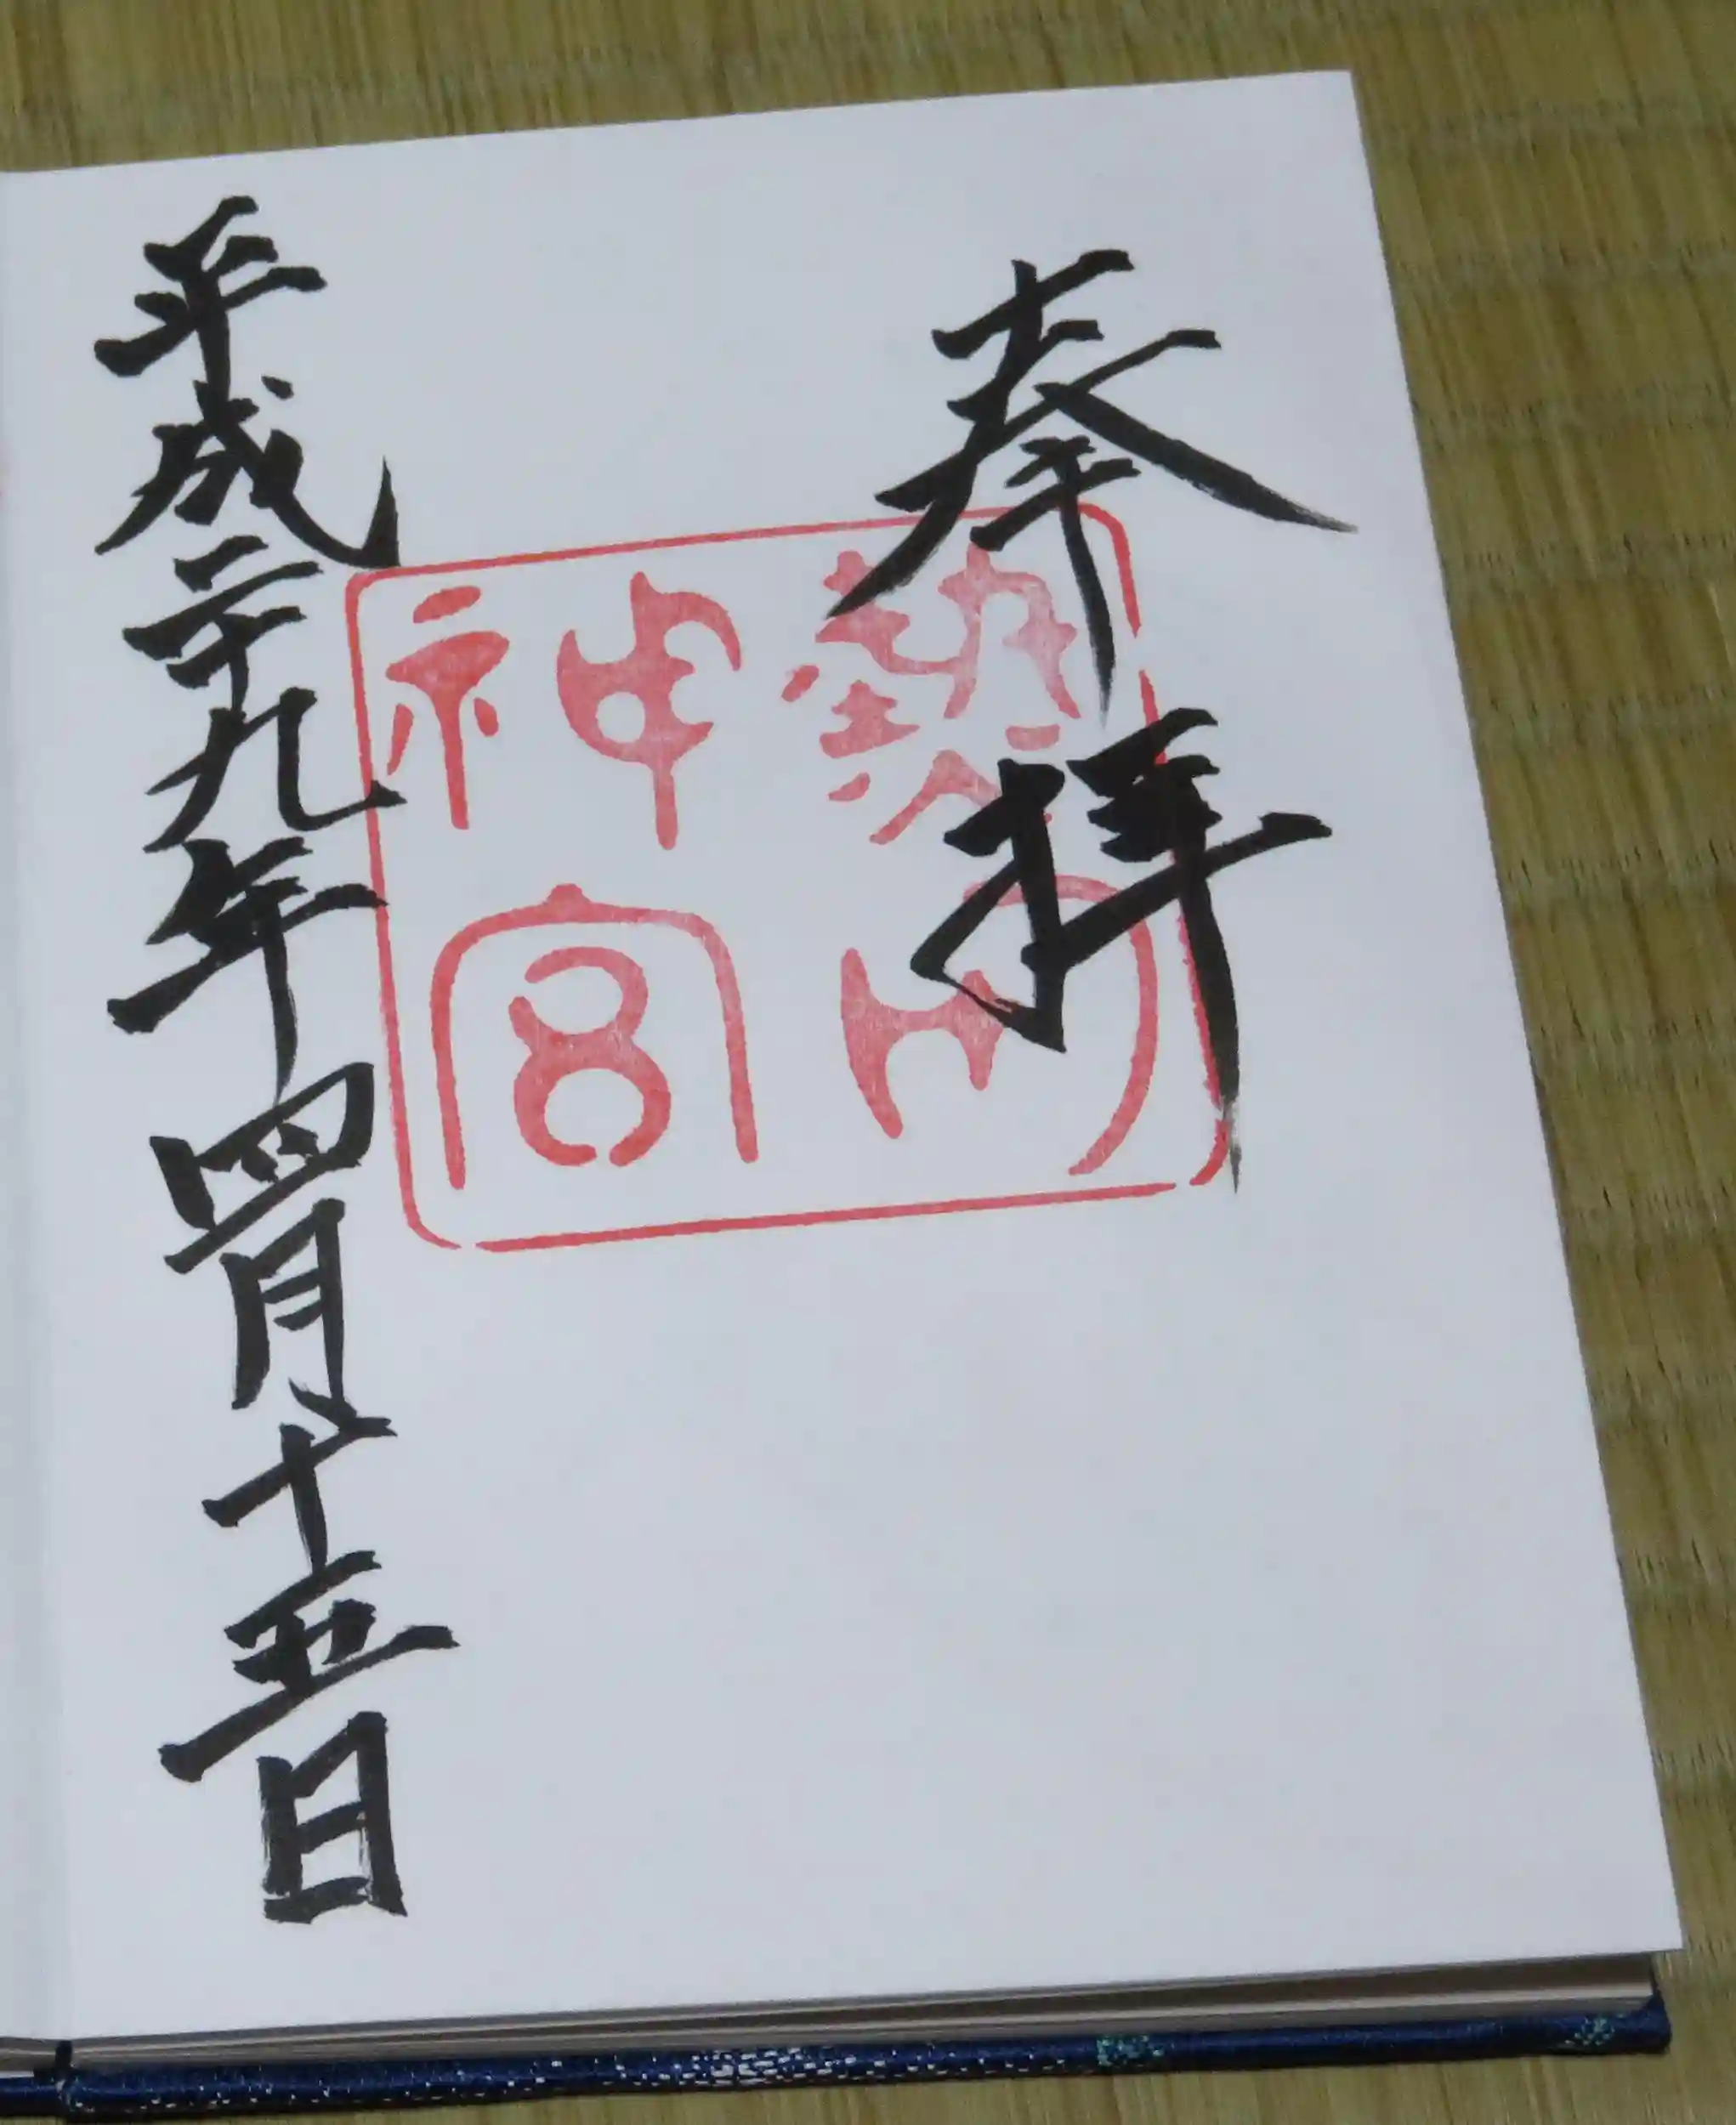 奉拝
熱田
神宮
平成二十九年四月十五日